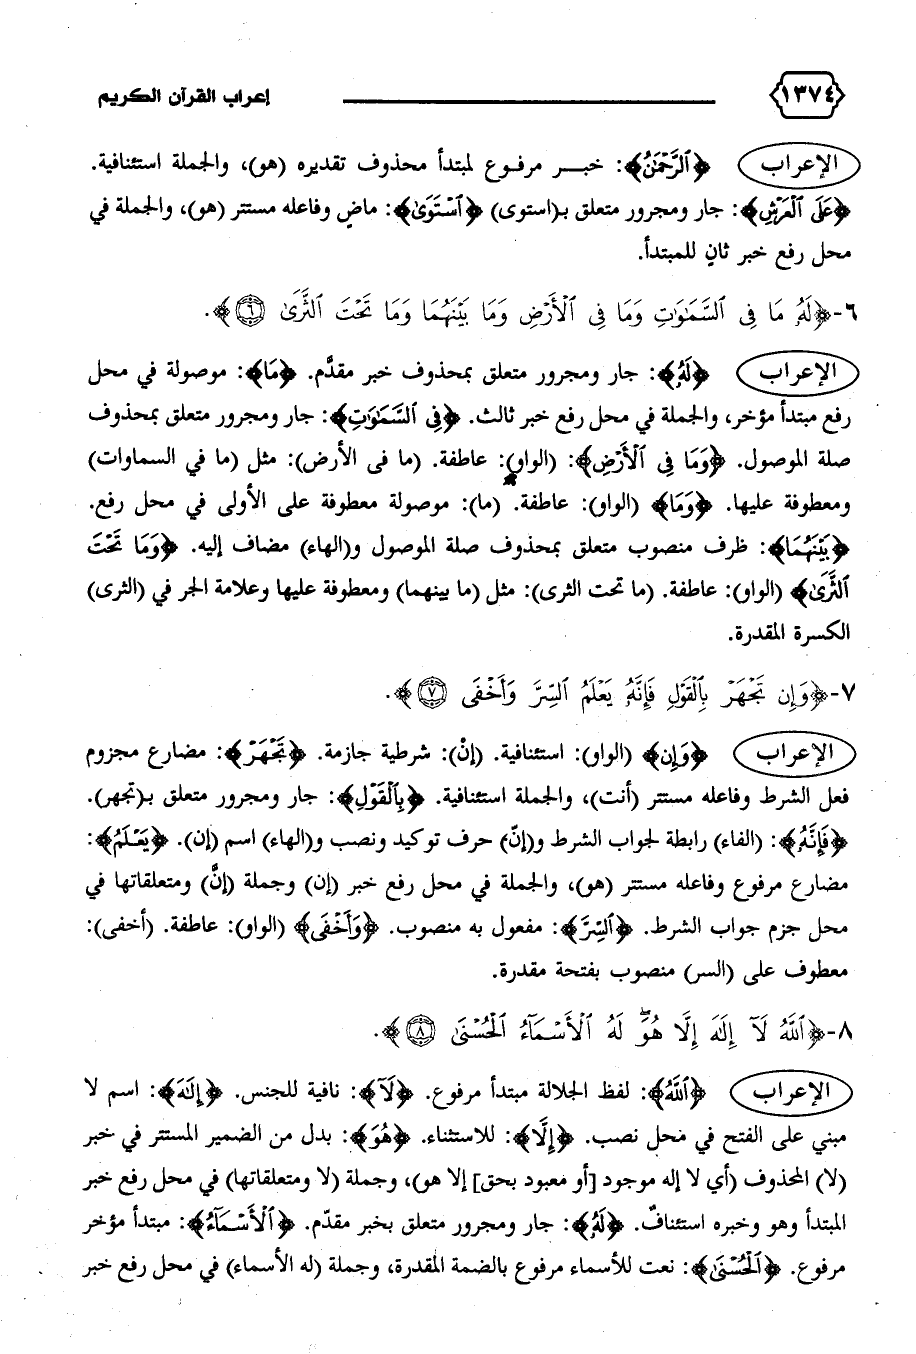 ١٣٧٤ إعراب القرآن الكريم
الإعراب ﴿ٱلرَّحۡمَٰنُ﴾: خبـر مرفـوع لمبتدأ محذوف تقديره (هو)، والجملة استئنافية.
﴿عَلَى ٱلۡعَرۡشِ﴾: جار ومجرور متعلق بـ(استوى) ﴿ٱسۡتَوَىٰ﴾: ماضٍ وفاعله مستتر (هو)، والجملة في
محل رفع خبر ثانٍ للمبتدأ.
٦-﴿لَهُۥ مَا فِي ٱلسَّمَٰوَٰتِ وَمَا فِي ٱلۡأَرۡضِ وَمَا بَيۡنَهُمَا وَمَا تَحۡتَ ٱلثَّرَىٰ ٦﴾.
الإعراب ﴿لَهُۥ﴾: جار ومجرور متعلق بمحذوف خبر مقدَّم. ﴿مَا﴾: موصولة في محل
رفع مبتدأ مؤخر، والجملة في محل رفع خبر ثالث. ﴿فِي ٱلسَّمَٰوَٰتِ﴾: جار ومجرور متعلق بمحذوف
صلة الموصول. ﴿وَمَا فِي ٱلۡأَرۡضِ﴾: (الواو): عاطفة. (ما فى الأرض): مثل (ما في السماوات)
ومعطوفة عليها. ﴿وَمَا﴾ (الواو): عاطفة. (ما): موصولة معطوفة على الأولى في محل رفع.
﴿بَيۡنَهُمَا﴾: ظرف منصوب متعلق بمحذوف صلة الموصول و(الهاء) مضاف إليه. ﴿وَمَا تَحۡتَ
ٱلثَّرَىٰ﴾ (الواو): عاطفة. (ما تحت الثرى): مثل (ما بينهما) ومعطوفة عليها وعلامة الجر في (الثرى)
الكسرة المقدرة.
٧-﴿وَإِن تَجۡهَرۡ بِٱلۡقَوۡلِ فَإِنَّهُۥ يَعۡلَمُ ٱلسِّرَّ وَأَخۡفَى ٧﴾.
الإعراب ﴿وَإِن﴾ (الواو): استئنافية. (إنْ): شرطية جازمة. ﴿تَجۡهَرۡ﴾: مضارع مجزوم
فعل الشرط وفاعله مستتر (أنت)، والجملة استئنافية. ﴿بِٱلۡقَوۡلِ﴾: جار ومجرور متعلق بـ(تجهر).
﴿فَإِنَّهُۥ﴾: (الفاء) رابطة لجواب الشرط و(إنّ) حرف توكيد ونصب و(الهاء) اسم (إن). ﴿يَعۡلَمُ﴾:
مضارع مرفوع وفاعله مستتر (هو)، والجملة في محل رفع خبر (إن) وجملة (إنَّ) ومتعلقاتها في
محل جزم جواب الشرط. ﴿ٱلسِّرَّ﴾: مفعول به منصوب. ﴿وَأَخۡفَى﴾ (الواو): عاطفة. (أخفى):
معطوف على (السر) منصوب بفتحة مقدرة.
٨-﴿ٱللَّهُ لَآ إِلَٰهَ إِلَّا هُوَۖ لَهُ ٱلۡأَسۡمَآءُ ٱلۡحُسۡنَىٰ ٨﴾.
الإعراب ﴿ٱللَّهُ﴾: لفظ الجلالة مبتدأ مرفوع. ﴿لَآ﴾: نافية للجنس. ﴿إِلَٰهَ﴾: اسم لا
مبني على الفتح في محل نصب. ﴿إِلَّا﴾: للاستثناء. ﴿هُوَ﴾: بدل من الضمير المستتر في خبر
(لا) المحذوف (أي لا إله موجود [أو معبود بحق] إلا هو)، وجملة (لا ومتعلقاتها) في محل رفع خبر
المبتدأ وهو وخبره استئنافٌ. ﴿لَهُ﴾: جار ومجرور متعلق بخبر مقدّم. ﴿ٱلۡأَسۡمَآءُ﴾: مبتدأ مؤخر
مرفوع. ﴿ٱلۡحُسۡنَىٰ﴾: نعت للأسماء مرفوع بالضمة المقدرة، وجملة (له الأسماء) في محل رفع خبر